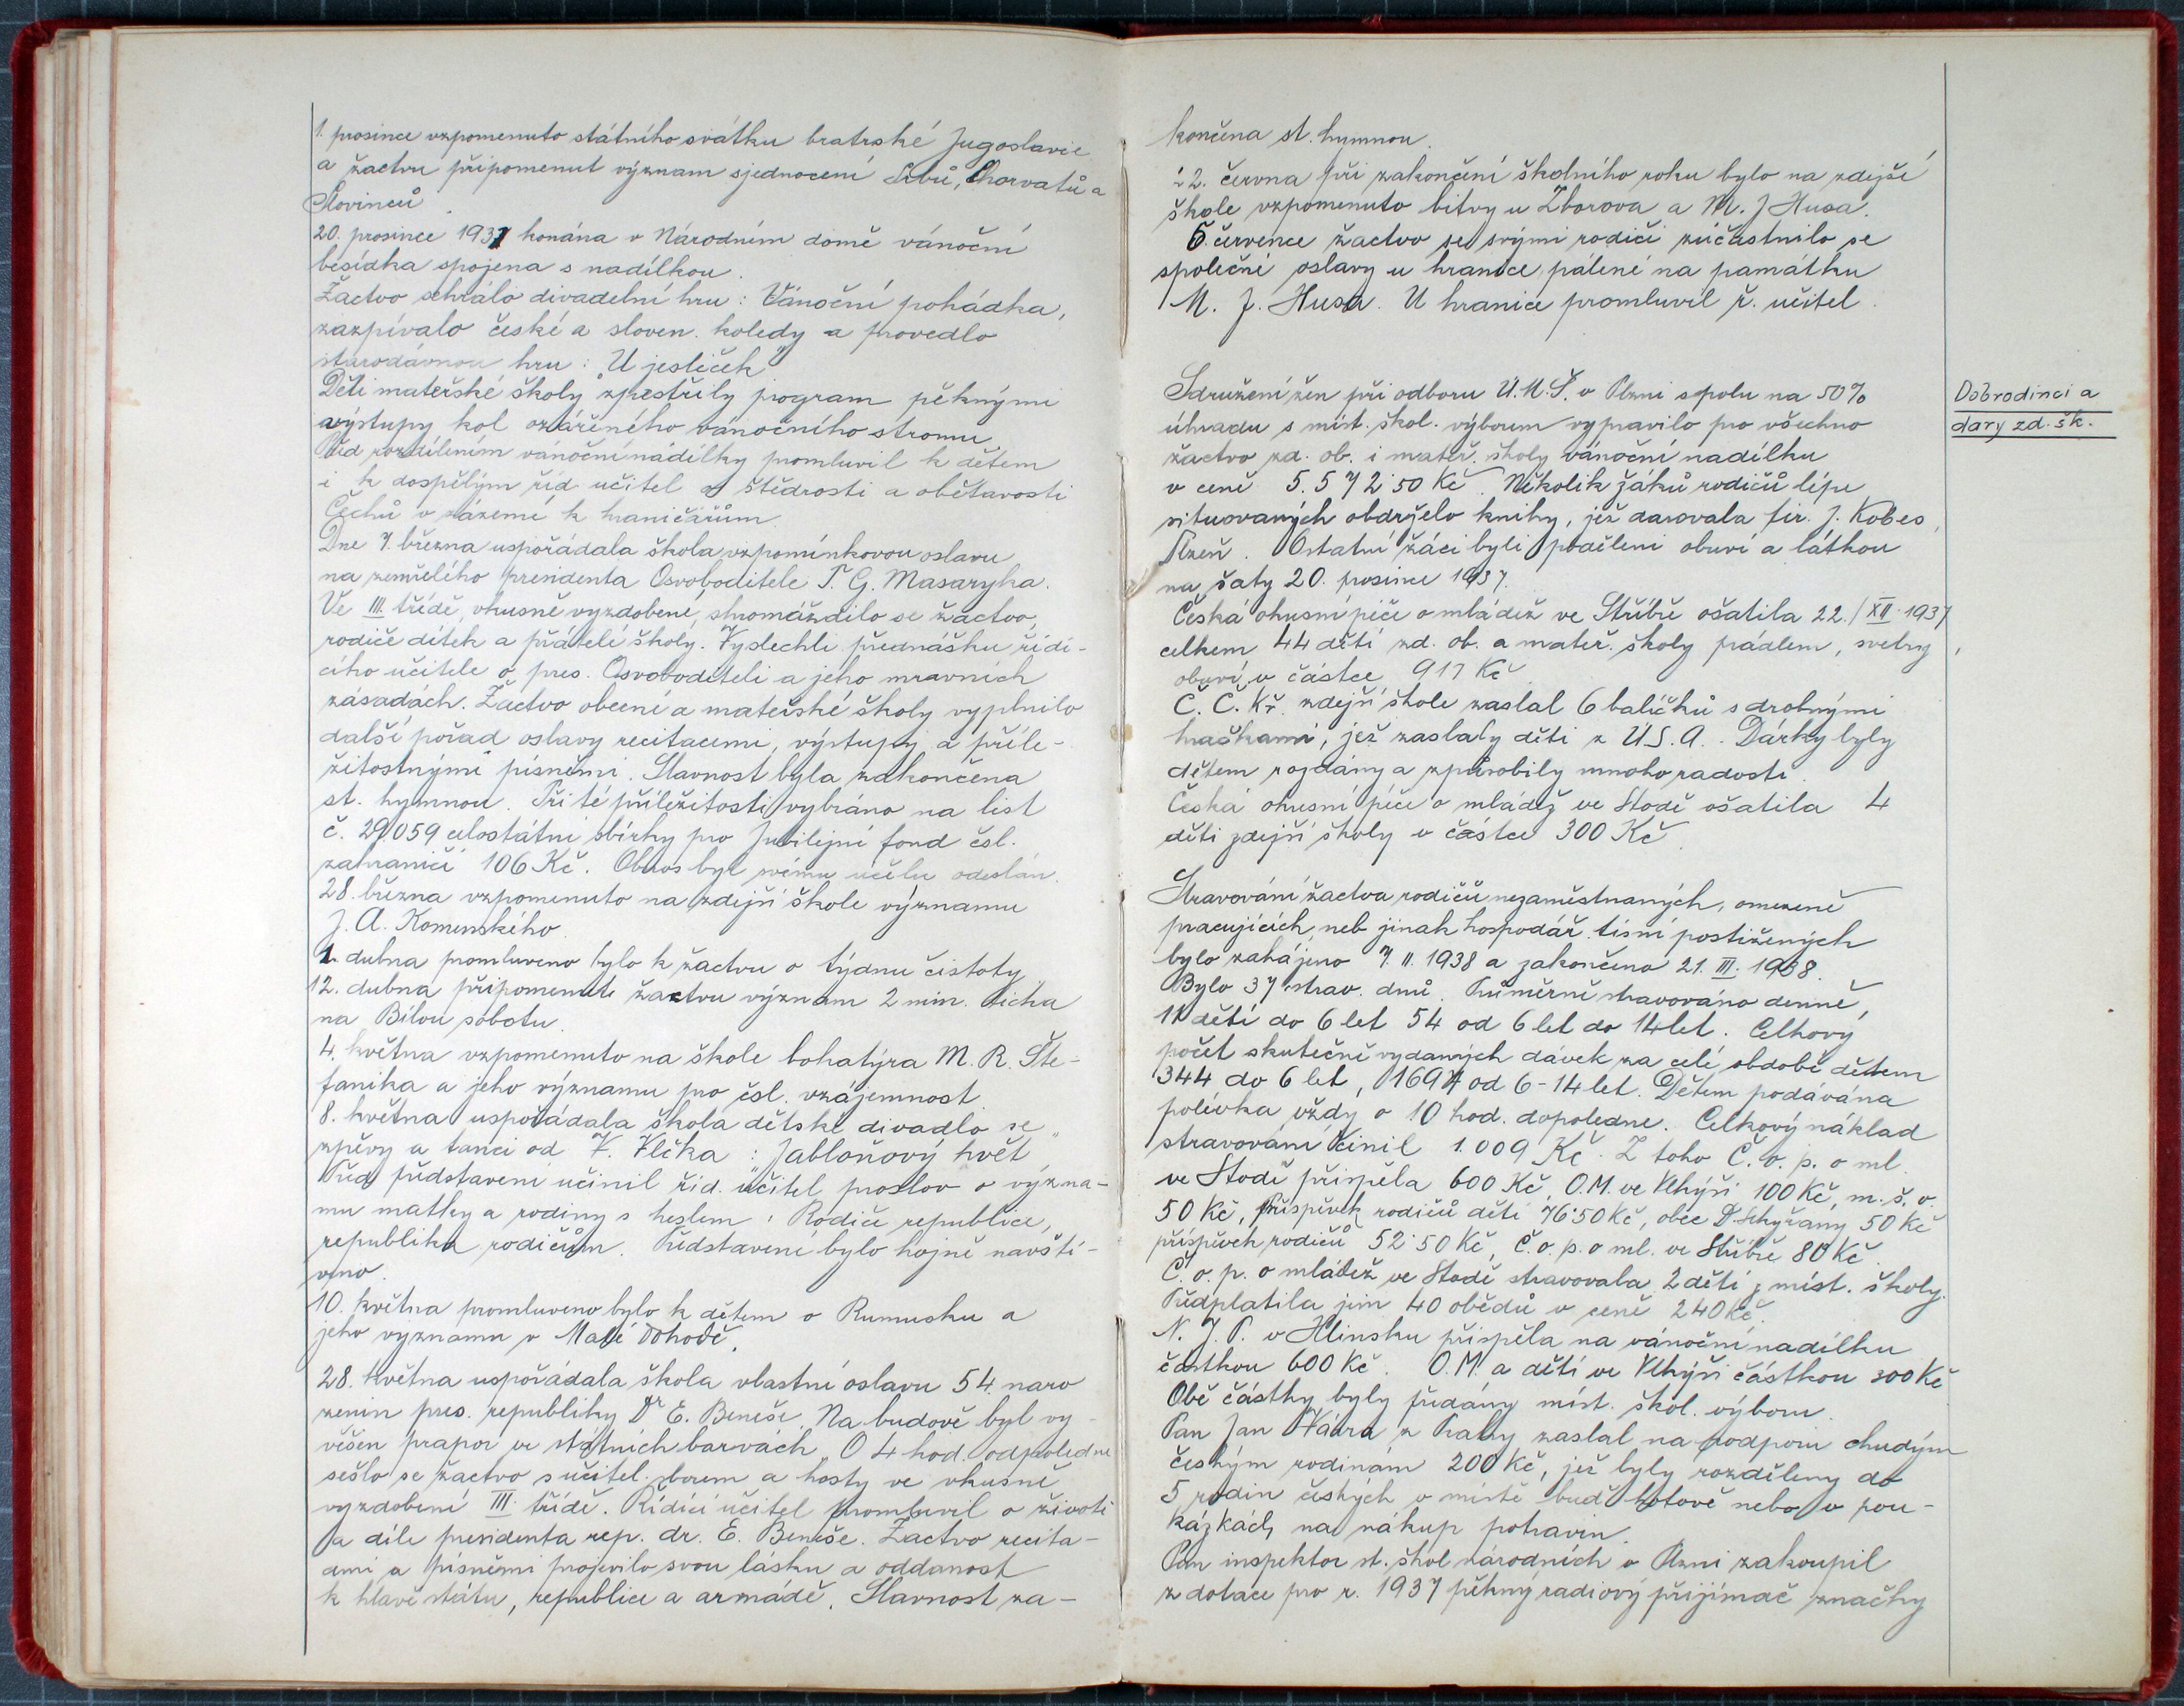 1. prosince vzpomenuto státního svátku bratrské Jugoslavie
a žactvu připomenut význam sjednocení Srbů, Chorvatů a
Slovinců.
20. prosince 1937 konána v Národním domě vánoční
besídka spojena s nadílkou.
Žactvo sehrálo divadelní hru: Vánoční pohádka,
zazpívalo české a sloven. koledy a provedlo
starodávnou hru: „U jesliček"
Děti mateřské školy zpestřily program pěknými
výstupy kol ozářeného vánočního stromu.
Před rozdílením vánoční nadílky promluvil k dětem
i k dospělým říd. učitel o štědrosti a obětavosti
Čechů v zázemí k hraničářům.
Dne 7. března uspořádala škola vzpomínkovou oslavu
na zemřelého presidenta Osvoboditele T. G. Masaryka.
Ve III. třídě, vkusně vyzdobené, shromáždilo se žactvo,
rodiče dítek a přátelé školy. Vyslechli přednášku řídí-
cího učitele o pres. Osvoboditeli a jeho mravních
zásadách. Žactvo obecné a mateřské školy vyplnilo
další pořad oslavy recitacemi, výstupy a příle-
žitostnými písněmi. Slavnost byla zakončena
st. hymnou. Při té příležitosti vybráno na list
č. 29.059 celostátní sbírky pro Jubilejní fond čsl.
zahraničí 106 Kč. Obnos byl svému účelu odeslán.
28. března vzpomenuto na zdejší škole významu
J. A. Komenského.
1. dubna promluveno bylo k žactvu o týdnu čistoty.
12. dubna připomenut žactvu význam 2 min. ticha
na Bílou sobotu.
4. května vzpomenuto na škole bohatýra M. R. Šte-
fanika a jeho významu pro čsl. vzájemnost.
8. května uspořádala škola dětské divadlo se
zpěvy a tanci od V. Vlčka: „Jabloňový květ"
Před představení učinil říd. učitel proslov o význa-
mu matky a rodiny s heslem: Rodiče republice,
republika rodičům. Představení bylo hojně navští-
veno.
10. května promluveno bylo k dětem o Rumusku a
jeho významu v Malé Dohodě.
28. května uspořádala škola vlastní oslavu 54. naro
zenin pres. republiky Dr E. Beneše. Na budově byl vy-
věšen prapor ve státních barvách. O 4 hod. odpoledne
sešlo se žactvo s učitel. sborem a hosty ve vkusně
vyzdobené III. třídě. Řídící učitel promluvil o životě
a díle presidenta rep. dr. E. Beneše. Žactvo recita-
cemi a písněmi projevilo svou lásku a oddanost
k hlavě státu, republice a armádě. Slavnost za-
končena st. hymnou.
22. června při zakončení školního roku bylo na zdejší
škole vzpomenuto bitvy u Zborova a M. J Husa.
6. července žactvo se svými rodiči zúčastnilo se
společné oslavy u hranice, pálené na památku
M. J. Husa. U hranice promluvil ř. učitel.
Dobrodinci a
dary zd. šk.
Sdružení žen při odboru Ú.M.Š. v Plzni spolu na 50%
úhradu s míst. škol. výborem vypravilo pro všechno
žactvo zd. ob. i mateř. školy vánoční nadílku
v ceně 5.572˙50 Kč. Několik žáků rodičů lépe
situovaných obdrželo knihy, jež darovala fir. J. Kobes,
Plzeň. Ostatní žáci byli poděleni obuví a látkou
na šaty 20. prosince 1937.
Česká okresní péče o mládež ve Stříbře ošatila 22./XII. 1937
celkem 44 dětí zd. ob. a mateř. školy prádlem, svetry,
obuví v částce 917 Kč.
Č. Č. Kř. zdejší škole zaslal 6 balíčků s drobnými
hračkami, jež zaslaly děti z U.S.A. Dárky byly
dětem rozdány a způsobily mnoho radosti.
Česká okresní péče o mládež ve Stodě ošatila 4
děti zdejší školy v částce 300 Kč.
Stravování žactva rodičů nezaměstnaných, omezeně
pracujících, neb jinak hospodář. tísní postižených
bylo zahájeno 7. II. 1938 a zakončeno 21. III. 1938.
Bylo 37 strav. dnů. Průměrně stravováno denně,
11 dětí do 6 let 54 od 6 let do 14 let. Celkový
počet skutečně vydaných dávek za celé období dětem
344 do 6 let, 1694 od 6-14 let. Dětem podávána
polévka vždy o 10 hod. dopoledne. Celkový náklad
stravování činil 1.009 Kč. Z toho Č. o. p. o ml.
ve Stodě přispěla 600 Kč, O.M. ve Vlkýši 100 Kč, m. š. v.
50 Kč, příspěvek rodičů dětí 76˙50 Kč, obec D. Sekyřany 50 Kč
příspěvek rodičů 52˙50 Kč, Č. o. p. o ml. ve Stříbře 80 Kč.
Č. o. p. o mládež ve Stodě stravovala 2 děti z míst. školy.
Předplatila jim 40 obědů v ceně 240 Kč.
N. J. P. v Hlinsku přispěla na vánoční nadílku
částkou 600 Kč. O.M. a dětí ve Vlkýši částkou 300 Kč
Obě částky byly předány míst. škol. výboru.
Pan Jan Vávra z Prahy zaslal na podporu chudým
českým rodinám 200 Kč, jež byly rozděleny do
5 rodin českých v místě buď hotově nebo v pou-
kázkách na nákup potravin.
Pan inspektor st. škol národních v Plzni zakoupil
z dotace pro r. 1937 pěkný radiový přijímač značky